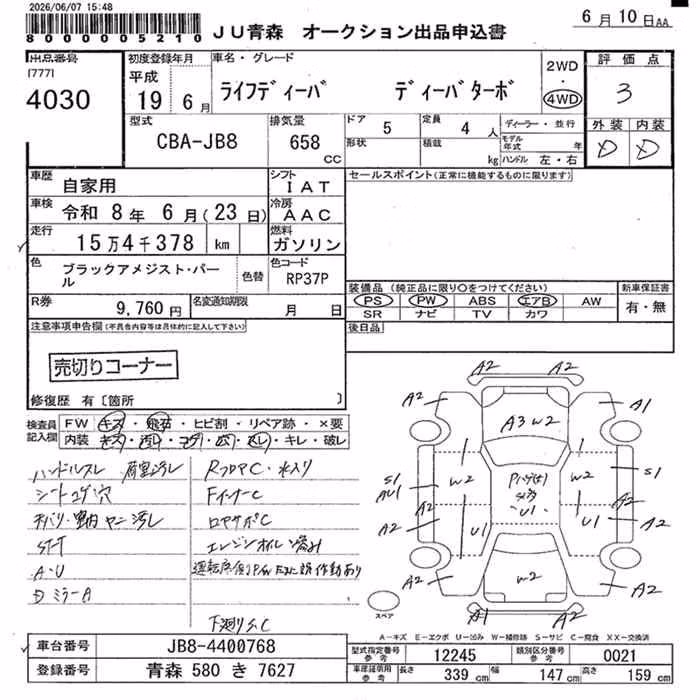 2026/06/07 15:48
800000005210
JU青森 オークション出品申込書
6月10日AA
出品番号
[777]
4030
初度登録年月
平成
19 6月
車名・グレード
ライフディーバ ディーバターボ
2WD
・
4WD
評価点
3
型式
CBA-JB8
排気量
658
CC
ドア 5
定員 4 人
形状
積載 kg
ディーラー・並行
モデル年式 年
ハンドル 左・右
外装 内装
D D
車歴
自家用
シフト
IAT
セールスポイント(正常に機能するものに限ります)
車検
令和 8年 6月(23日)
冷房
AAC
走行
15万4千378 km
燃料
ガソリン
色
ブラックアメジスト・パール
色替
色コード
RP37P
装備品 (純正品に限り○をつけてください)
PS PW ABS エアB AW
SR ナビ TV カワ
新車保証書
有・無
R券
9,760円
名変通知期限
月 日
後日品
注意事項申告欄(不具合内容等は具体的に記入して下さい)
売切りコーナー
修復歴 有〔箇所 〕
検査員記入欄
FW キズ・飛石・ヒビ割・リペア跡・×要
内装 キズ・汚れ・コゲ・穴・スレ・キレ・破レ
ハンドルスレ 荷室汚レ
シートコゲ穴
天バリ・室内ヤニ汚レ
ST-T
A-U
DミラーA
RフロアC・水入り
FインナーC
ロアサポC
エンジンオイル滲み
下廻りS.C
A2 A2
A2 A1
A3 W2
S1
AU1
W2
W2
S1
A2
U1
U1
A2
A2
W2
A2
A1 A2
スペア
A-キズ E-エクボ U-凹み W-補修跡 S-サビ C-腐食 XX-交換済
車台番号
JB8-4400768
登録番号
青森 580 き 7627
型式指定番号
参考
12245
類別区分番号
参考
0021
車庫証明用
参考
長さ 339 cm
幅 147 cm
高さ 159 cm